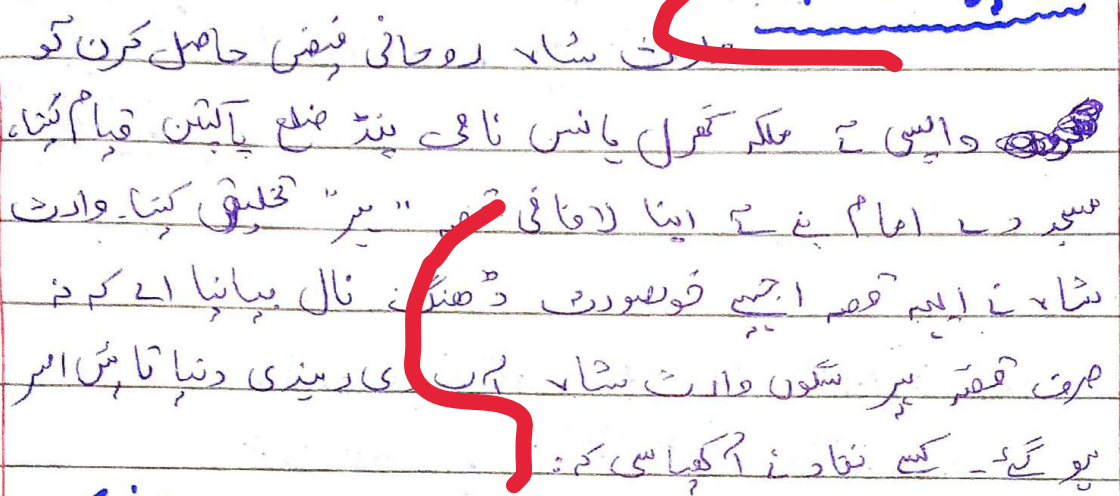 وارث شاہ روحانی فیض حاصل کرن تو
واپسی تے ملکہ ہانس نامی پنڈ ضلع پاکپتن قیام کیتا،
مسجد دے امام بنے تے اپنا لافانی قصہ "ہیر" تخلیق کیتا۔ وارث
شاہ نے ایہہ قصہ اجیہے خوبصورت ڈھنگ نال بیانیا اے کہ نہ
صرف قصہ ہیر سگوں وارث شاہ آپ وی رہندی دنیا تائیں امر
ہو گئے۔ کسے نقاد نے آکھیا سی کہ: